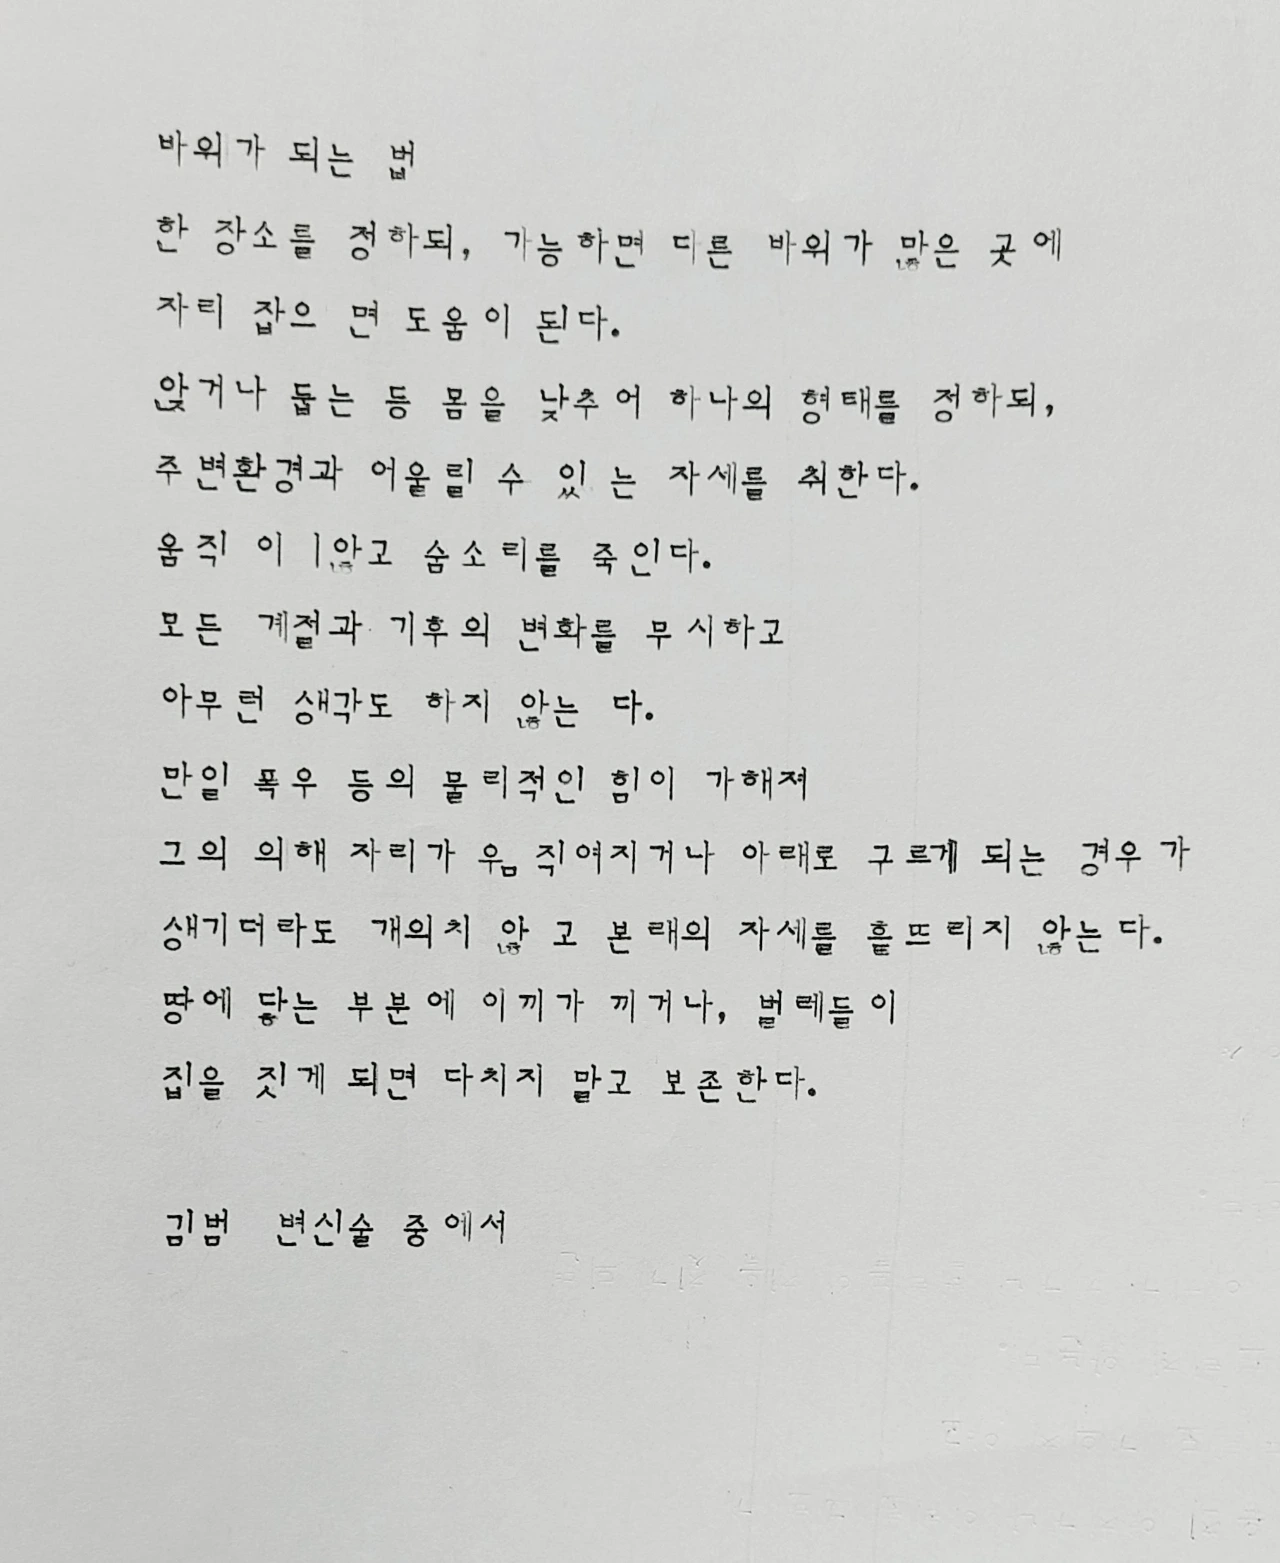 바위가 되는 법
한 장소를 정하되, 가능하면 다른 바위가 많은 곳에
자리 잡으 면 도움이 된다.
앉거나 눕는 등 몸을 낮추어 하나의 형태를 정하되,
주변환경과 어울릴 수 있 는 자세를 취한다.
움직 이 ㅣ않고 숨소리를 죽인다.
모든 계절과 기후의 변화를 무시하고
아무런 생각도 하지 않는 다.
만일 폭우 등의 물리적인 힘이 가해져
그의 의해 자리가 움 직여지거나 아래로 구르게 되는 경우 가
생기더라도 개의치 않 고 본래의 자세를 흩뜨리지 않는다.
땅에 닿는 부분에 이끼가 끼거나, 벌레들이
집을 짓게 되면 다치지 말고 보존한다.
김범 변신술 중에서